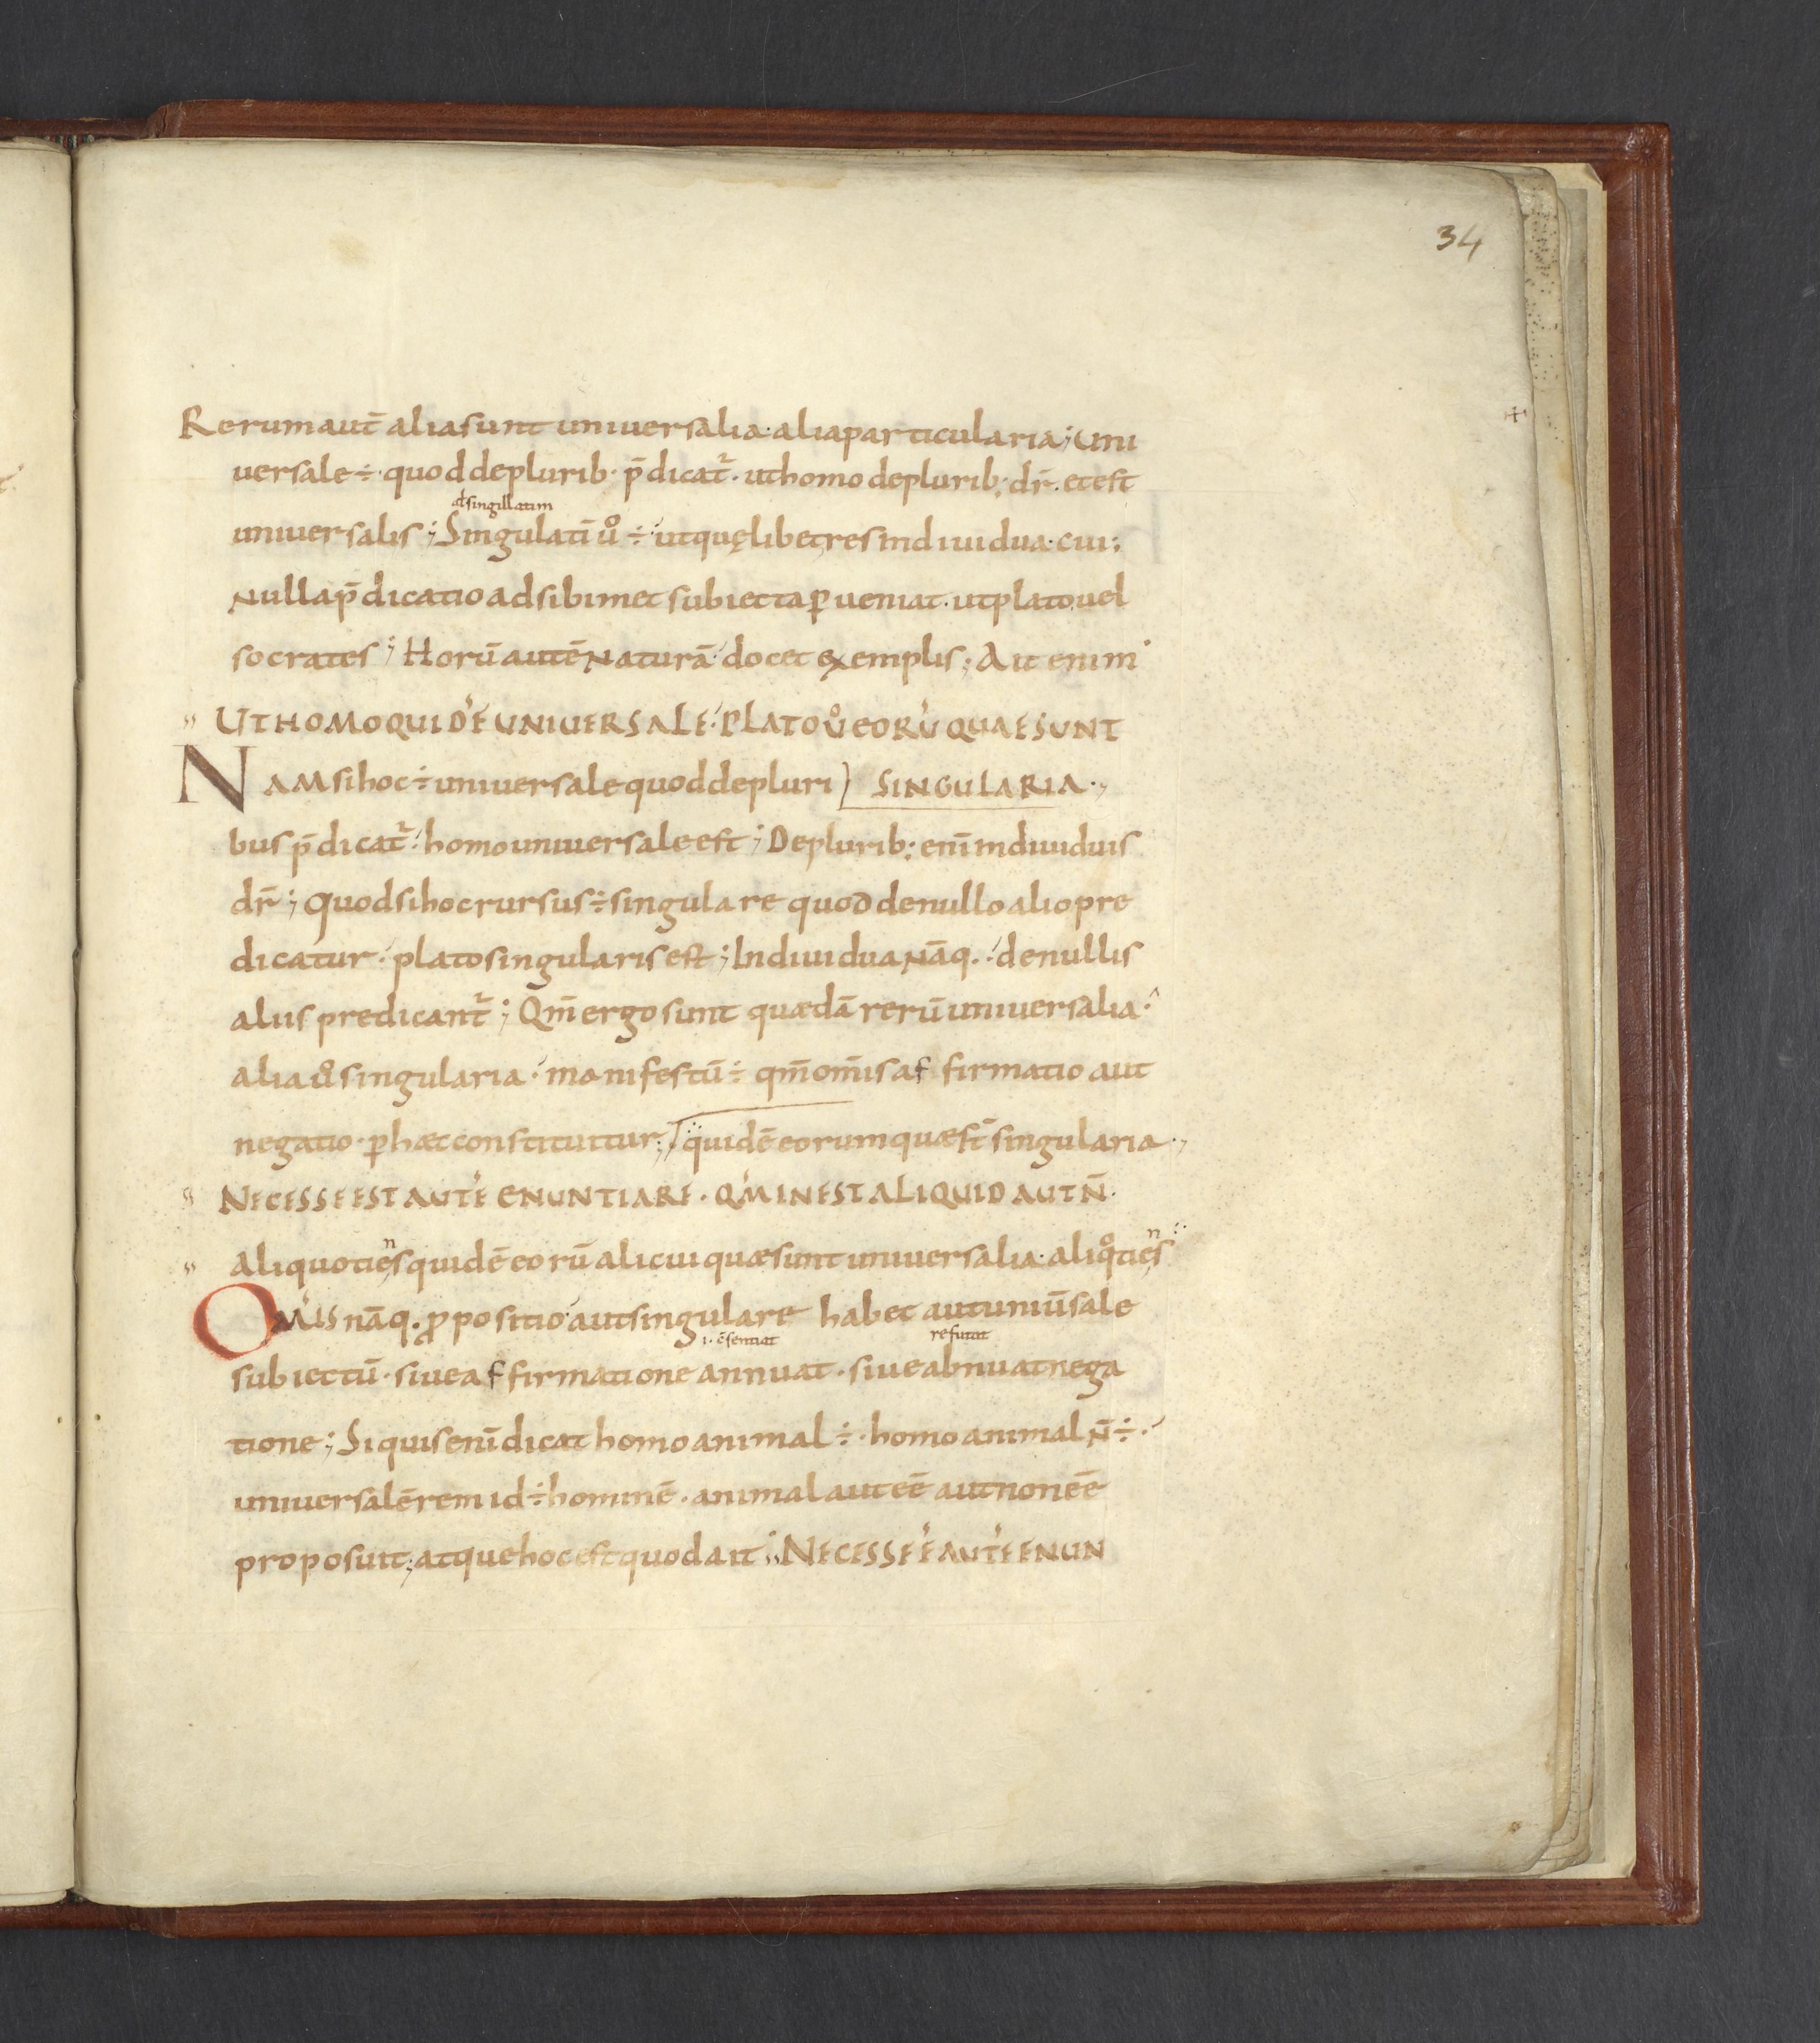 34
Rerum aut̄ alia sunt universalia · alia particularia ; Uni
versale ÷ · quod de plurib · p̄dicat᷑ · ut homo de plurib; dr̄ · et est
at singillatim
universalis ; Singulatī ů ÷ · ut quęlibet res individua · cui;
Nulla p̄dicatio ad sibimet subiecta ꝑveniat · ut plato vel
socrates ; Horū autē Naturā docet exemplis ; Ait enim
UT HOMO QUIDĒ UNIVERSALE · PLATO ů EORŪ QUAE SUNT
NAM si hoc ÷ universale quod de pluri ) SINGULARIA ·,
bus p̄dicat᷑ · homo universale est ; De plurib; enī individuis
dr̄ ; Quod si hoc rursus ÷ singulare quod de nullo alio pre
dicatur · plato singularis est ; Individua Nāq · de nullis
aliis predicant᷑ ; Qm̄ ergo sunt quædā rerū universalia ·
alia ů singularia · manifestū ÷ qm̄ om̄is affirmatio aut
negatio · ꝑ hæc constituitur ; quidē eorum quæ st̄ singularia ·,
NECESSE EST AUTĒ ENUNTIARE · QM̄ INEST ALIQUID AUT N̄ ·
n n
Aliquoties quidē eorū alicui quæ sunt universalia · aliq̊ties
OM̄IS nāq · ꝓpositio aut singulare habet aut uniūsale
i · c̄sentiat refutat
subiectū · sive affirmatione annuat · sive abnuat nega
tione ; Si quis enī dicat homo animal ÷ · homo animal n̄ ÷ ·
universalē rem id ÷ hominē · animal aut eē aut non eē
proposuit ; atque hoc est quod ait ; NECESSE Ē AUTĒ ENUN